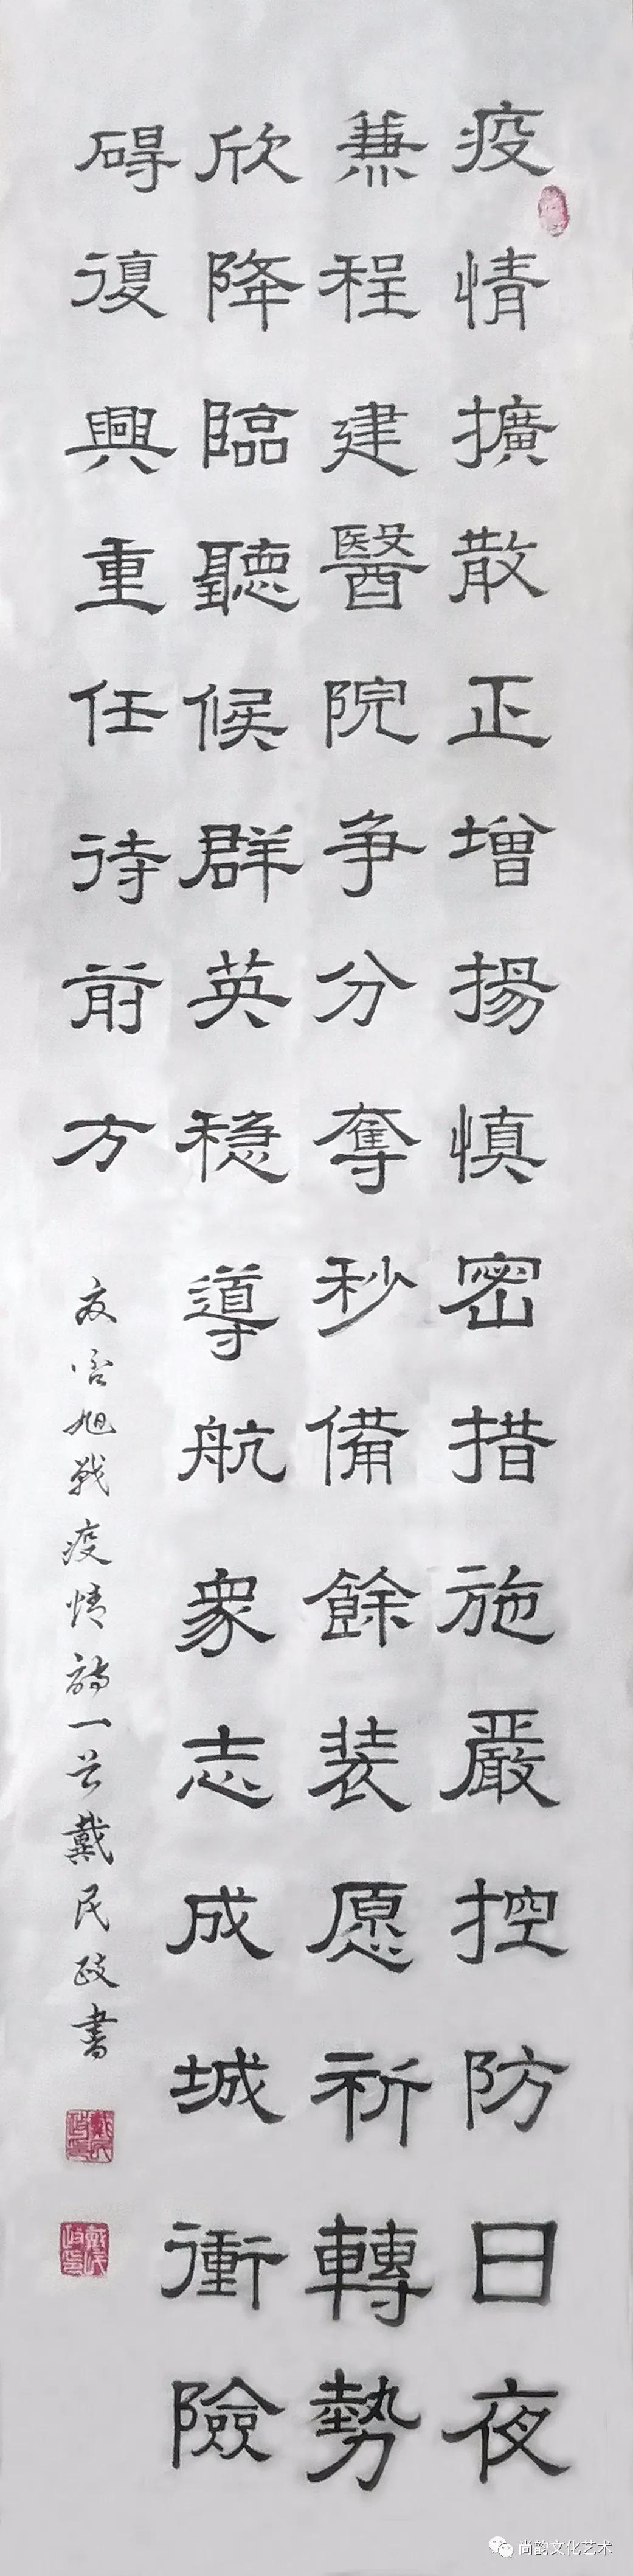 疫情擴散正增揚慎密措施嚴控防日夜
兼程建醫院争分奪秒備餘装愿祈轉勢
欣降臨聽候群英稳導航衆志成城衝險
碍復興重任待前方
友吝旭戰疫情詩一首戴民政書
尚韵文化艺术